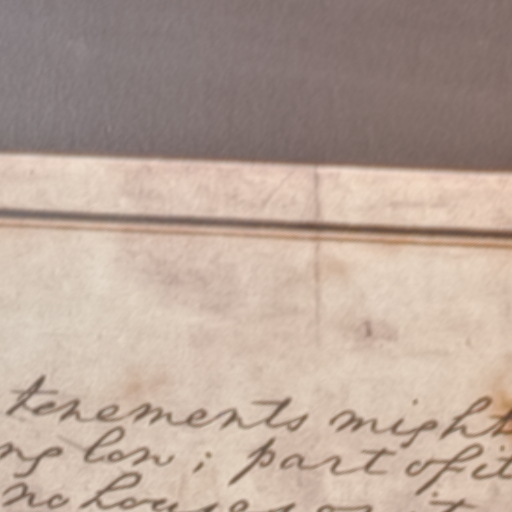 tenements might
ng lon; part of it
no houses or it